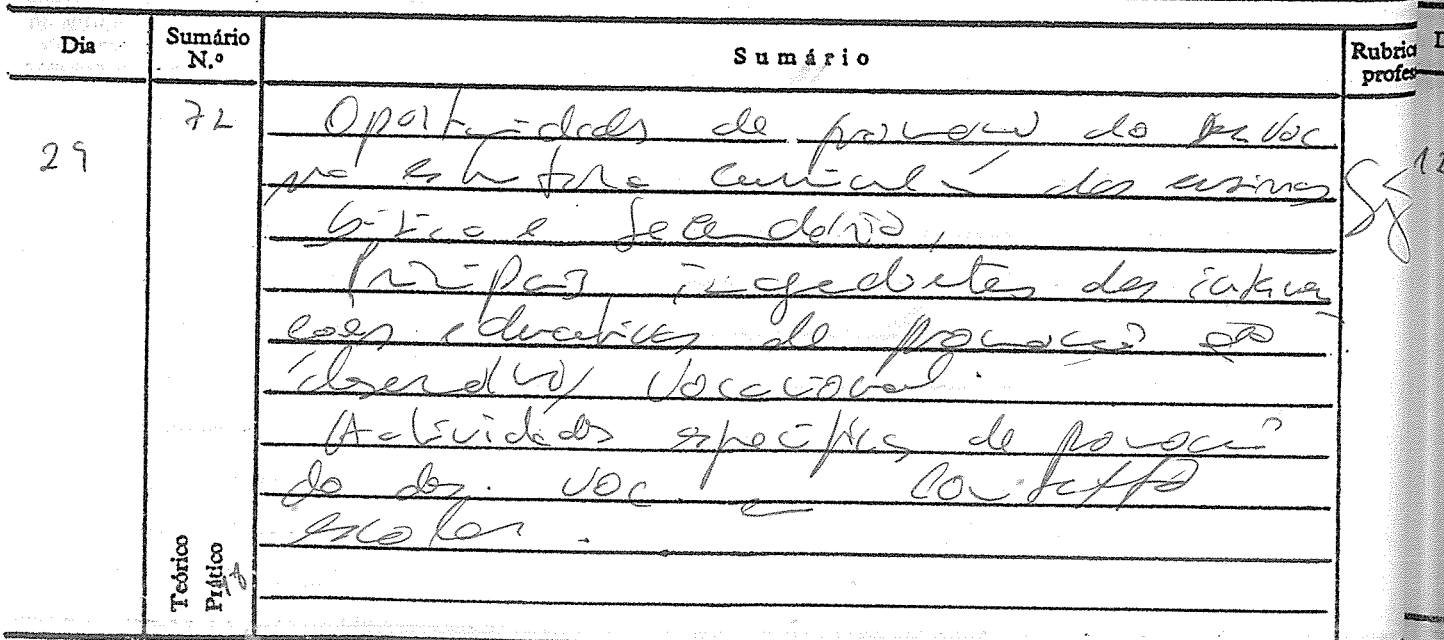 Dia Sumário N.º Sumário Rubrica profes
29 72 Oportunidades de promoção do des Voc
na estrutura curricular dos ensinos
básico e secundário,
Principais ingredientes das interven
ções educativas de promoção do
desenvolv/ vocacional.
Actividades específicas de promoção
do des. voc. em contexto
escolar.
Teórico
Prático